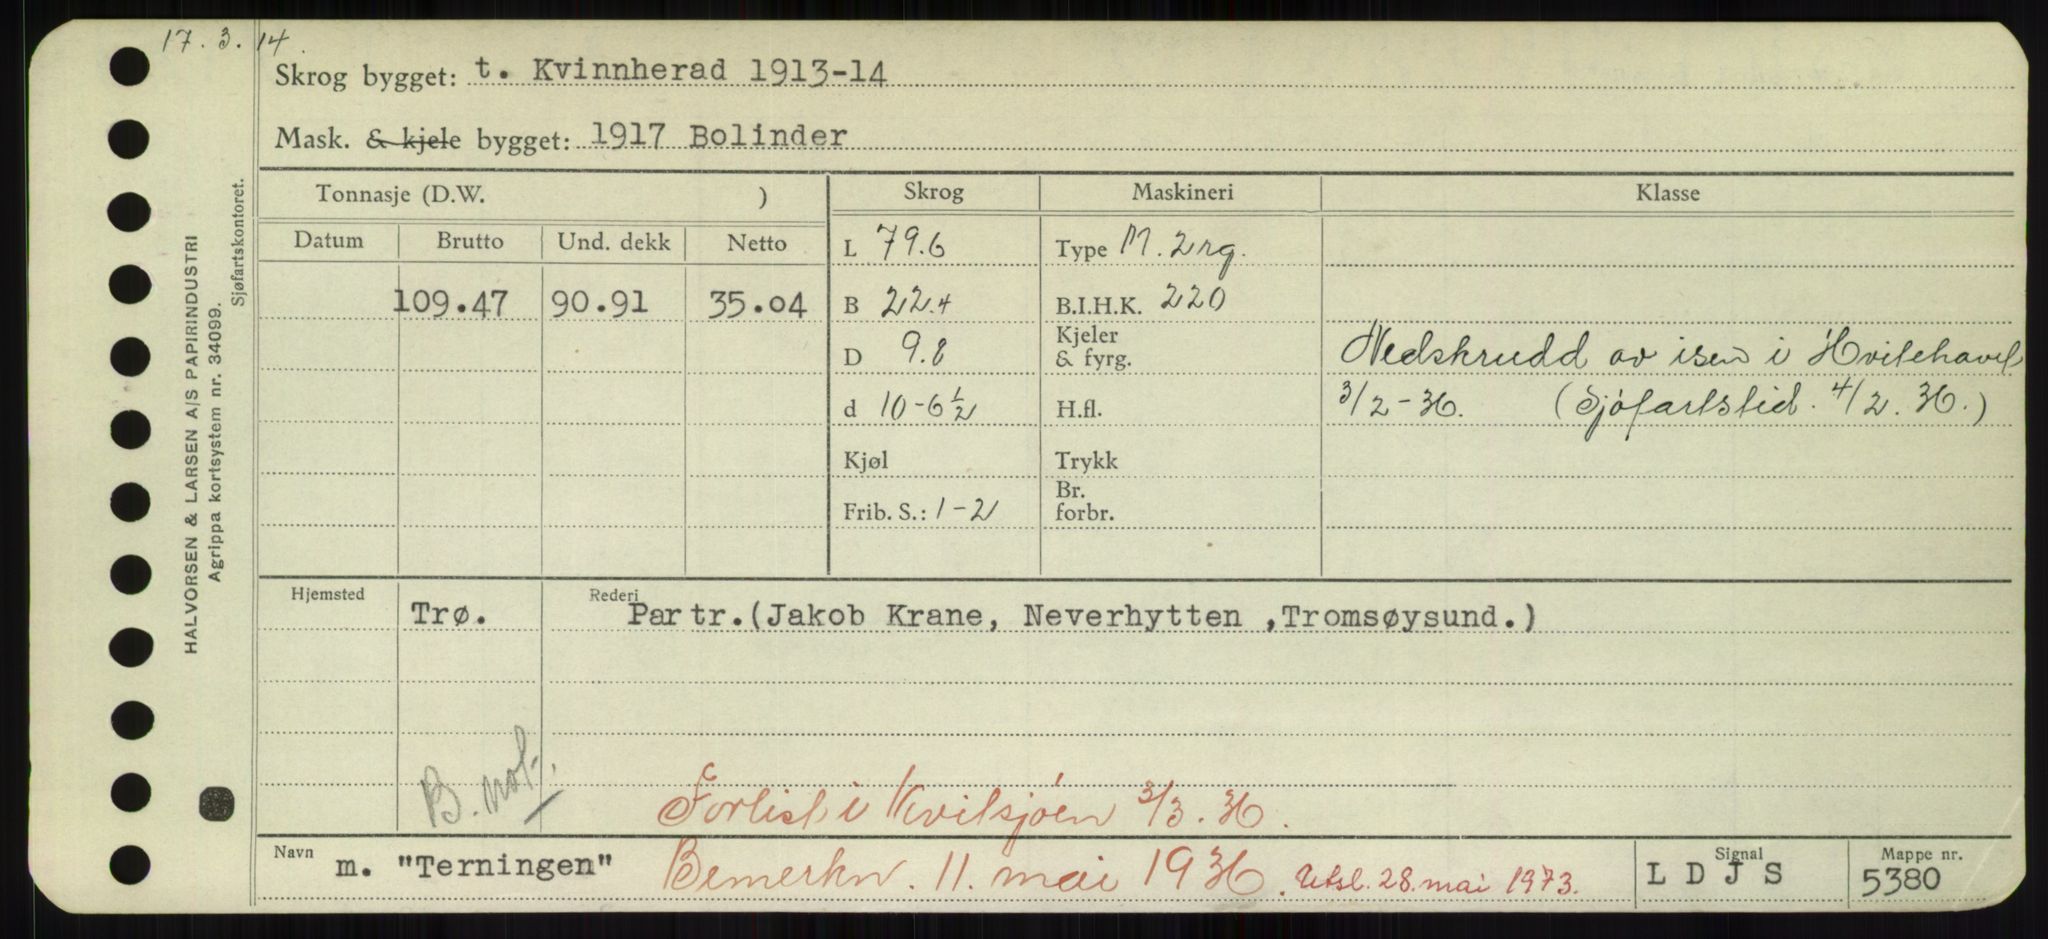 17.3.14.
Skrog bygget: t. Kvinnherad 1913-14
Mask. & kjele bygget: 1917 Bolinder
HALVORSEN & LARSEN A/S PAPIRINDUSTRI
Agrippa kortsystem nr. 34099.
Sjøfartskontoret.
Tonnasje (D.W. ) Skrog Maskineri Klasse
Datum Brutto Und. dekk Netto L 79.6 Type M. 2rg.
109.47 90.91 35.04 B 22.4 B.I.H.K. 220
D 9.8 Kjeler & fyrg. Nedskrudd av isen i Hvitehavet
d 10-6½ H.fl. 3/2-36. (Sjøfartstid. 4/2.36.)
Kjøl Trykk
Frib. S.: 1-2 Br. forbr.
Hjemsted Trø. Rederi Partr.(Jakob Krane, Neverhytten ,Tromsøysund.)
B. not.
Forlist i Kvitsjøen 3/3.36.
Navn m. "Terningen" Bemerkn. 11. mai 1936. Utsl. 28. mai 1973. Signal L D J S Mappe nr. 5380